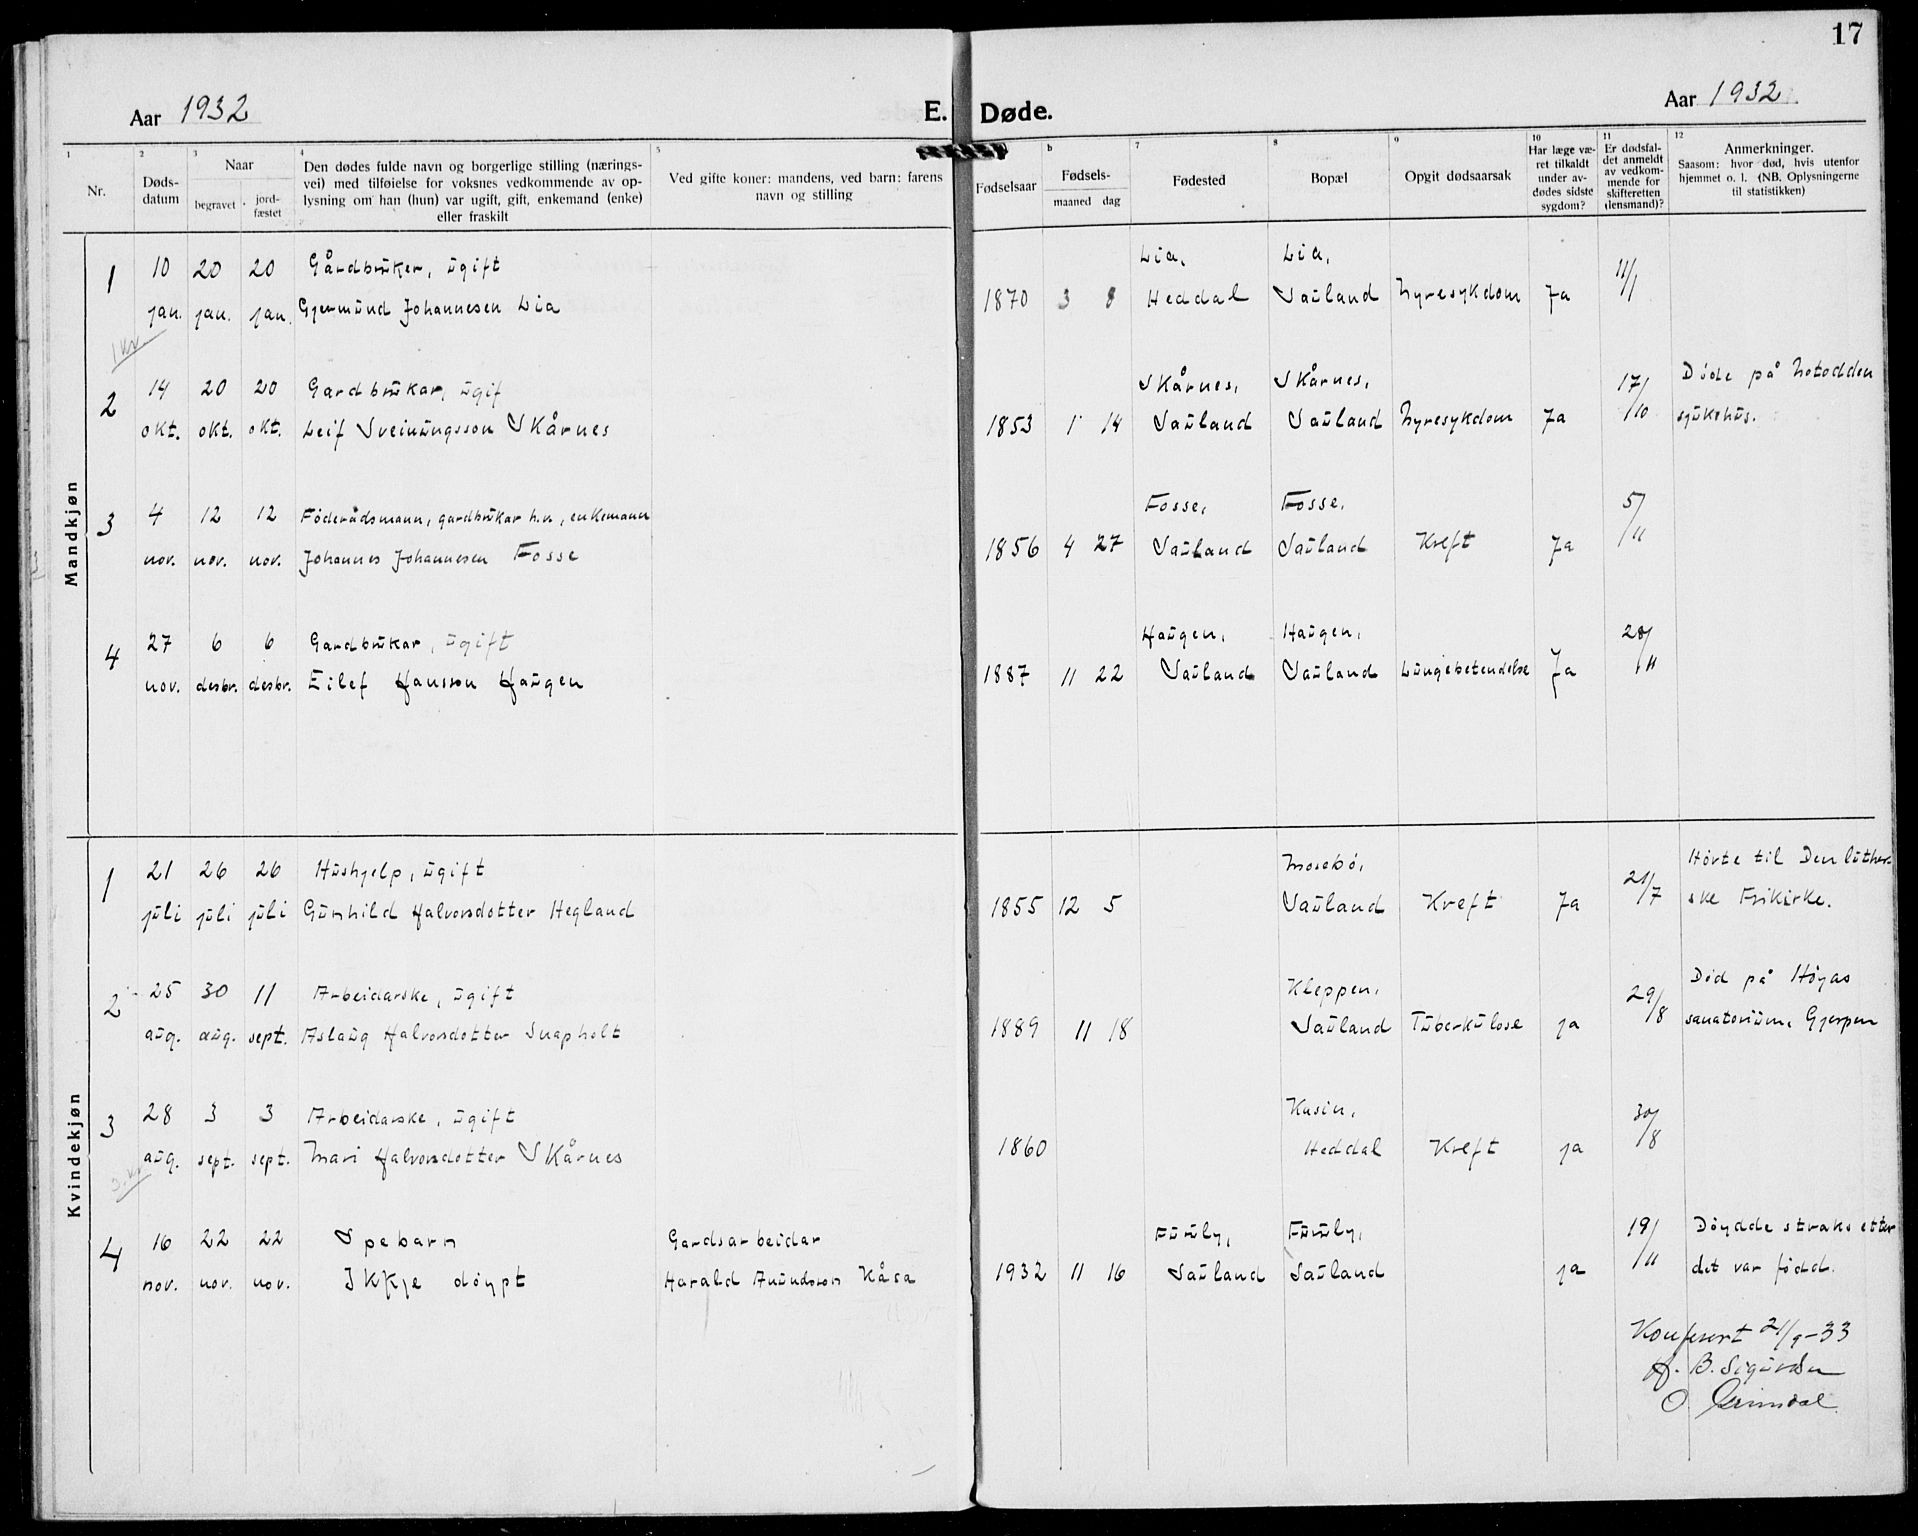 17
Aar 1932
E. Døde.
Aar 1932
1 2 3 4 5 6 7 8 9 10 11 12
Nr.
Døds-
datum
Naar
begravet
jord-
fæstet
Den dødes fulde navn og borgerlige stilling (nærings-
vei) med tilføielse for voksnes vedkommende av op-
lysning om han (hun) var ugift, gift, enkemand (enke)
eller fraskilt
Ved gifte koner: mandens, ved barn: farens
navn og stilling
Fødselsaar
Fødsels-
maaned dag
Fødested
Bopæl
Opgit dødsaarsak
Har læge væ-
ret tilkaldt
under av-
dødes sidste
sygdom?
Er dødsfal-
det anmeldt
av vedkom-
mende for
skifteretten
(lensmand)?
Anmerkninger.
Saasom: hvor død, hvis utenfor
hjemmet o. l. (NB. Oplysningerne
til statistikken)
Mandkjøn
1 10 20 20 Gårdbruker, ugift Lia, Lia, 11/1
jan. jan. jan. Gjermund Johannesen Lia 1870 3 8 Heddal Sauland Nyresykdom Ja
1 kv.
2 14 20 20 Gardbrukar, ugif Skårnes, Skårnes, 17/10 Døde på Notodden
okt. okt. okt. Leif Sveinungsson Skårnes 1853 1 14 Sauland Sauland Nyresykdom Ja sjukehus.
3 4 12 12 Føderådsmann, gardbrukar h.n, enkemann Fosse, Fosse, 5/11
nov. nov. nov. Johannes Johannesen Fosse 1856 4 27 Sauland Sauland Kreft Ja
4 27 6 6 Gardbrukar, ugift Haugen, Haugen, 28/11
nov. desbr. desbr. Eilef Hansson Haugen 1887 11 22 Sauland Sauland Lungebetendelse Ja
Kvindekjøn
1 21 26 26 Hushjelp, ugift Mosebø, 21/7 Hørte til Den luther-
juli juli juli Gunhild Halvorsdotter Hegland 1855 12 5 Sauland Kreft Ja ske Frikirke.
2 25 30 11 Arbeidarske, ugift Kleppen, 29/8 Død på Høyas
aug. aug. sept. Aslaug Halvorsdotter Snapholt 1889 11 18 Sauland Tuberkulose ja sanatorium, Gjerpen
3 28 3 3 Arbeidarske, ugift Kusin, 30/8
aug. sept. sept. Mari Halvorsdotter Skårnes 1860 Heddal Kreft ja
3. kv
4 16 22 22 Spebarn Gardsarbeidar Furuly, Furuly, 19/11 Døydde straks etter
nov. nov. nov. Ikkje døypt Harald Anundsson Kåsa 1932 11 16 Sauland Sauland ja det var fødd.
Konferert 21/9-33
B. Sigurdsen
O Grimdal